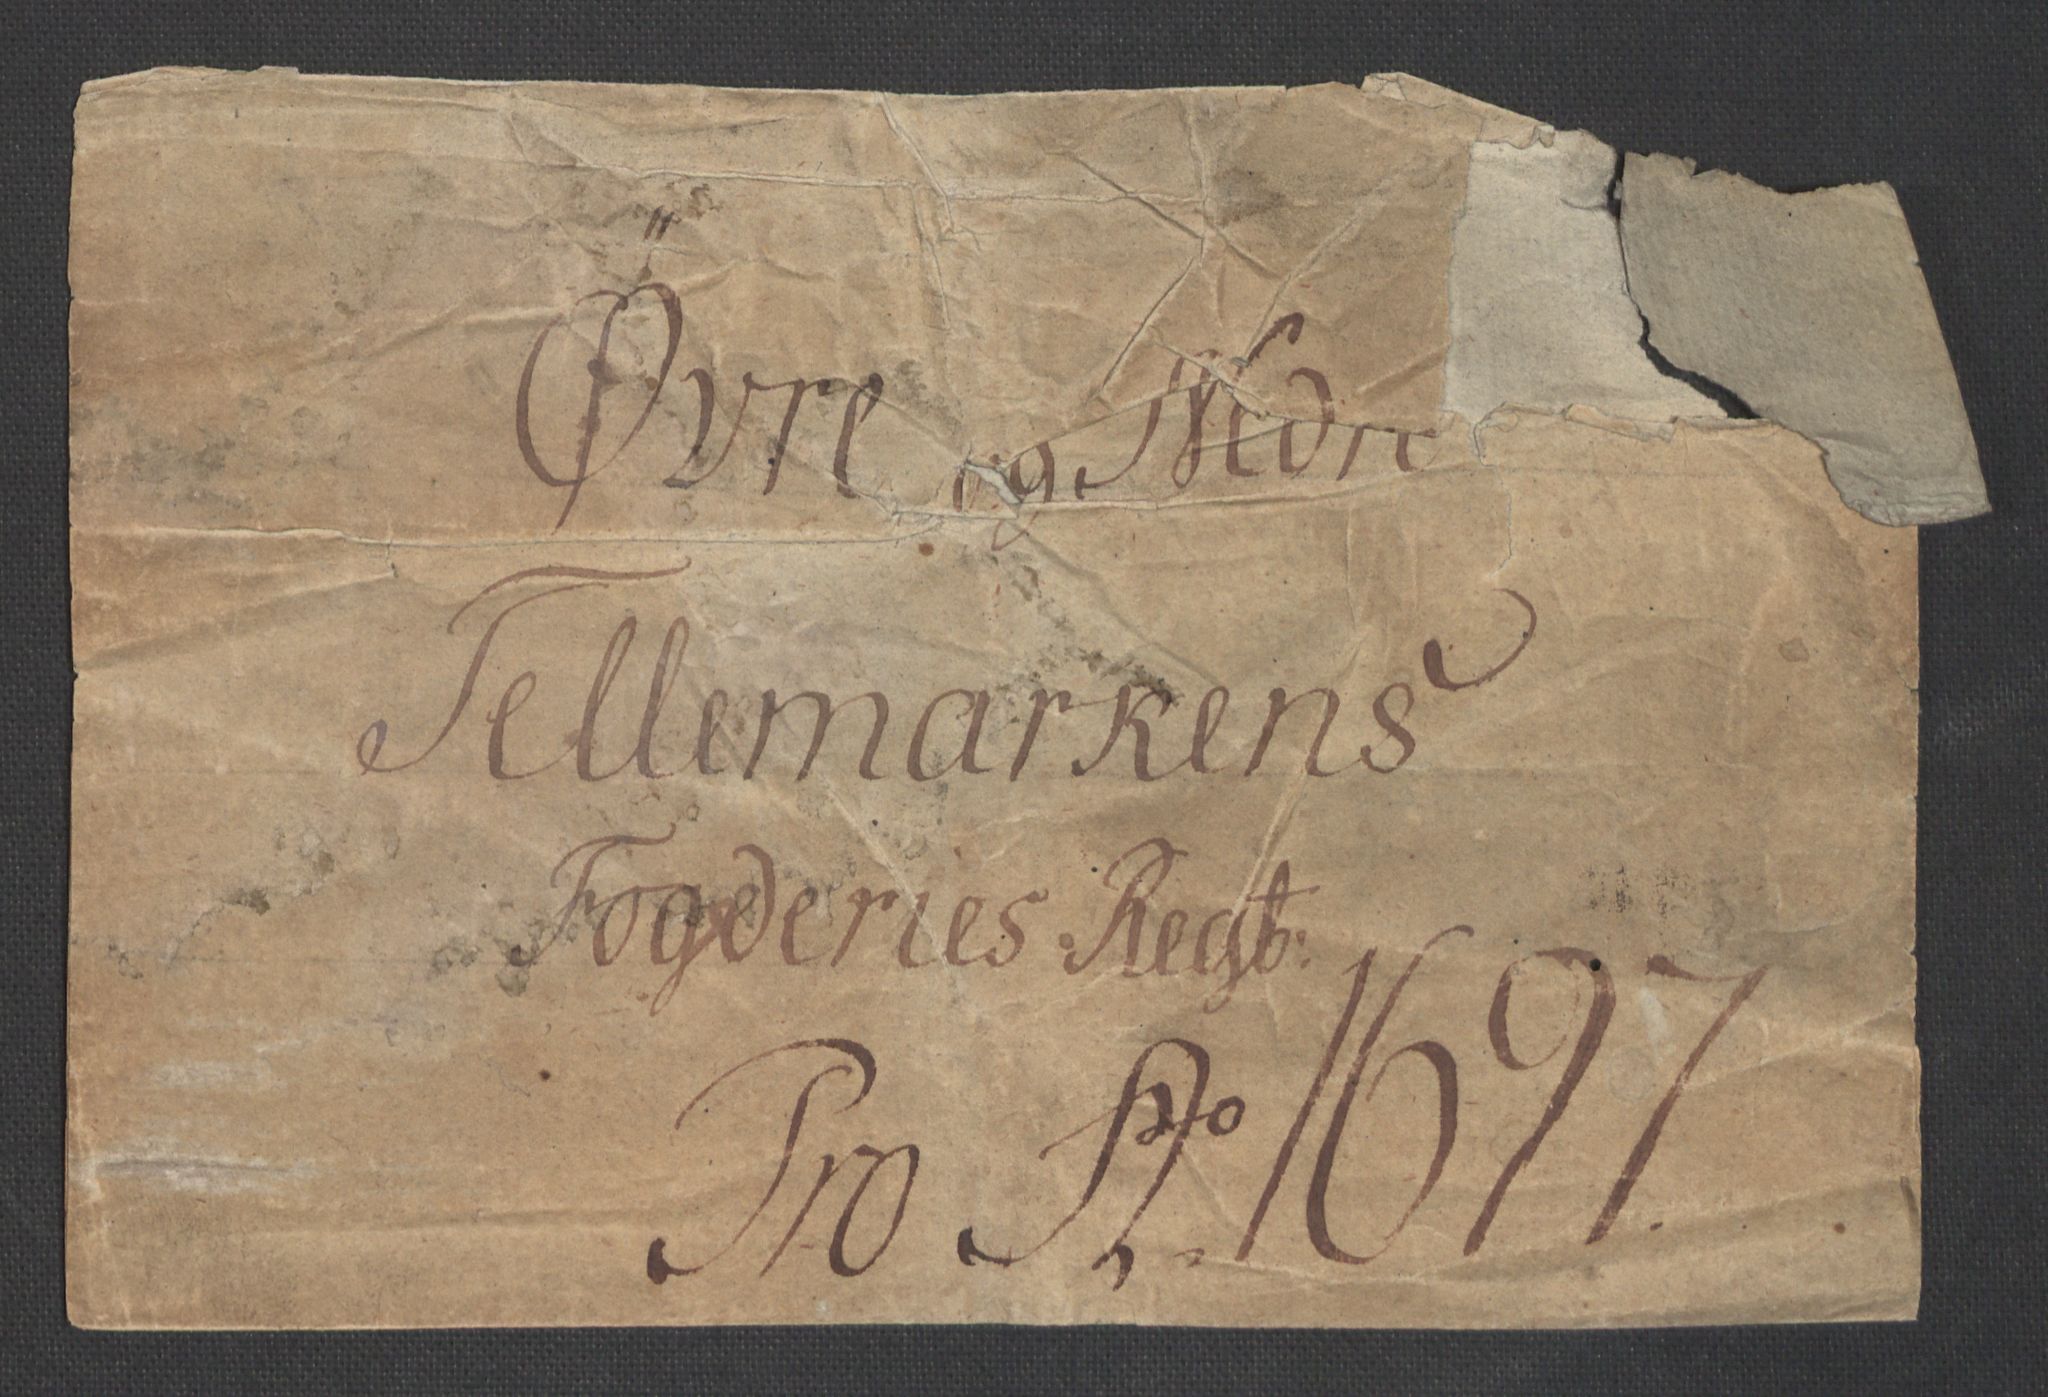 Øvre og Nedre
Tellemarkens
Fogderies Regsb:
Pro Ao 1697.